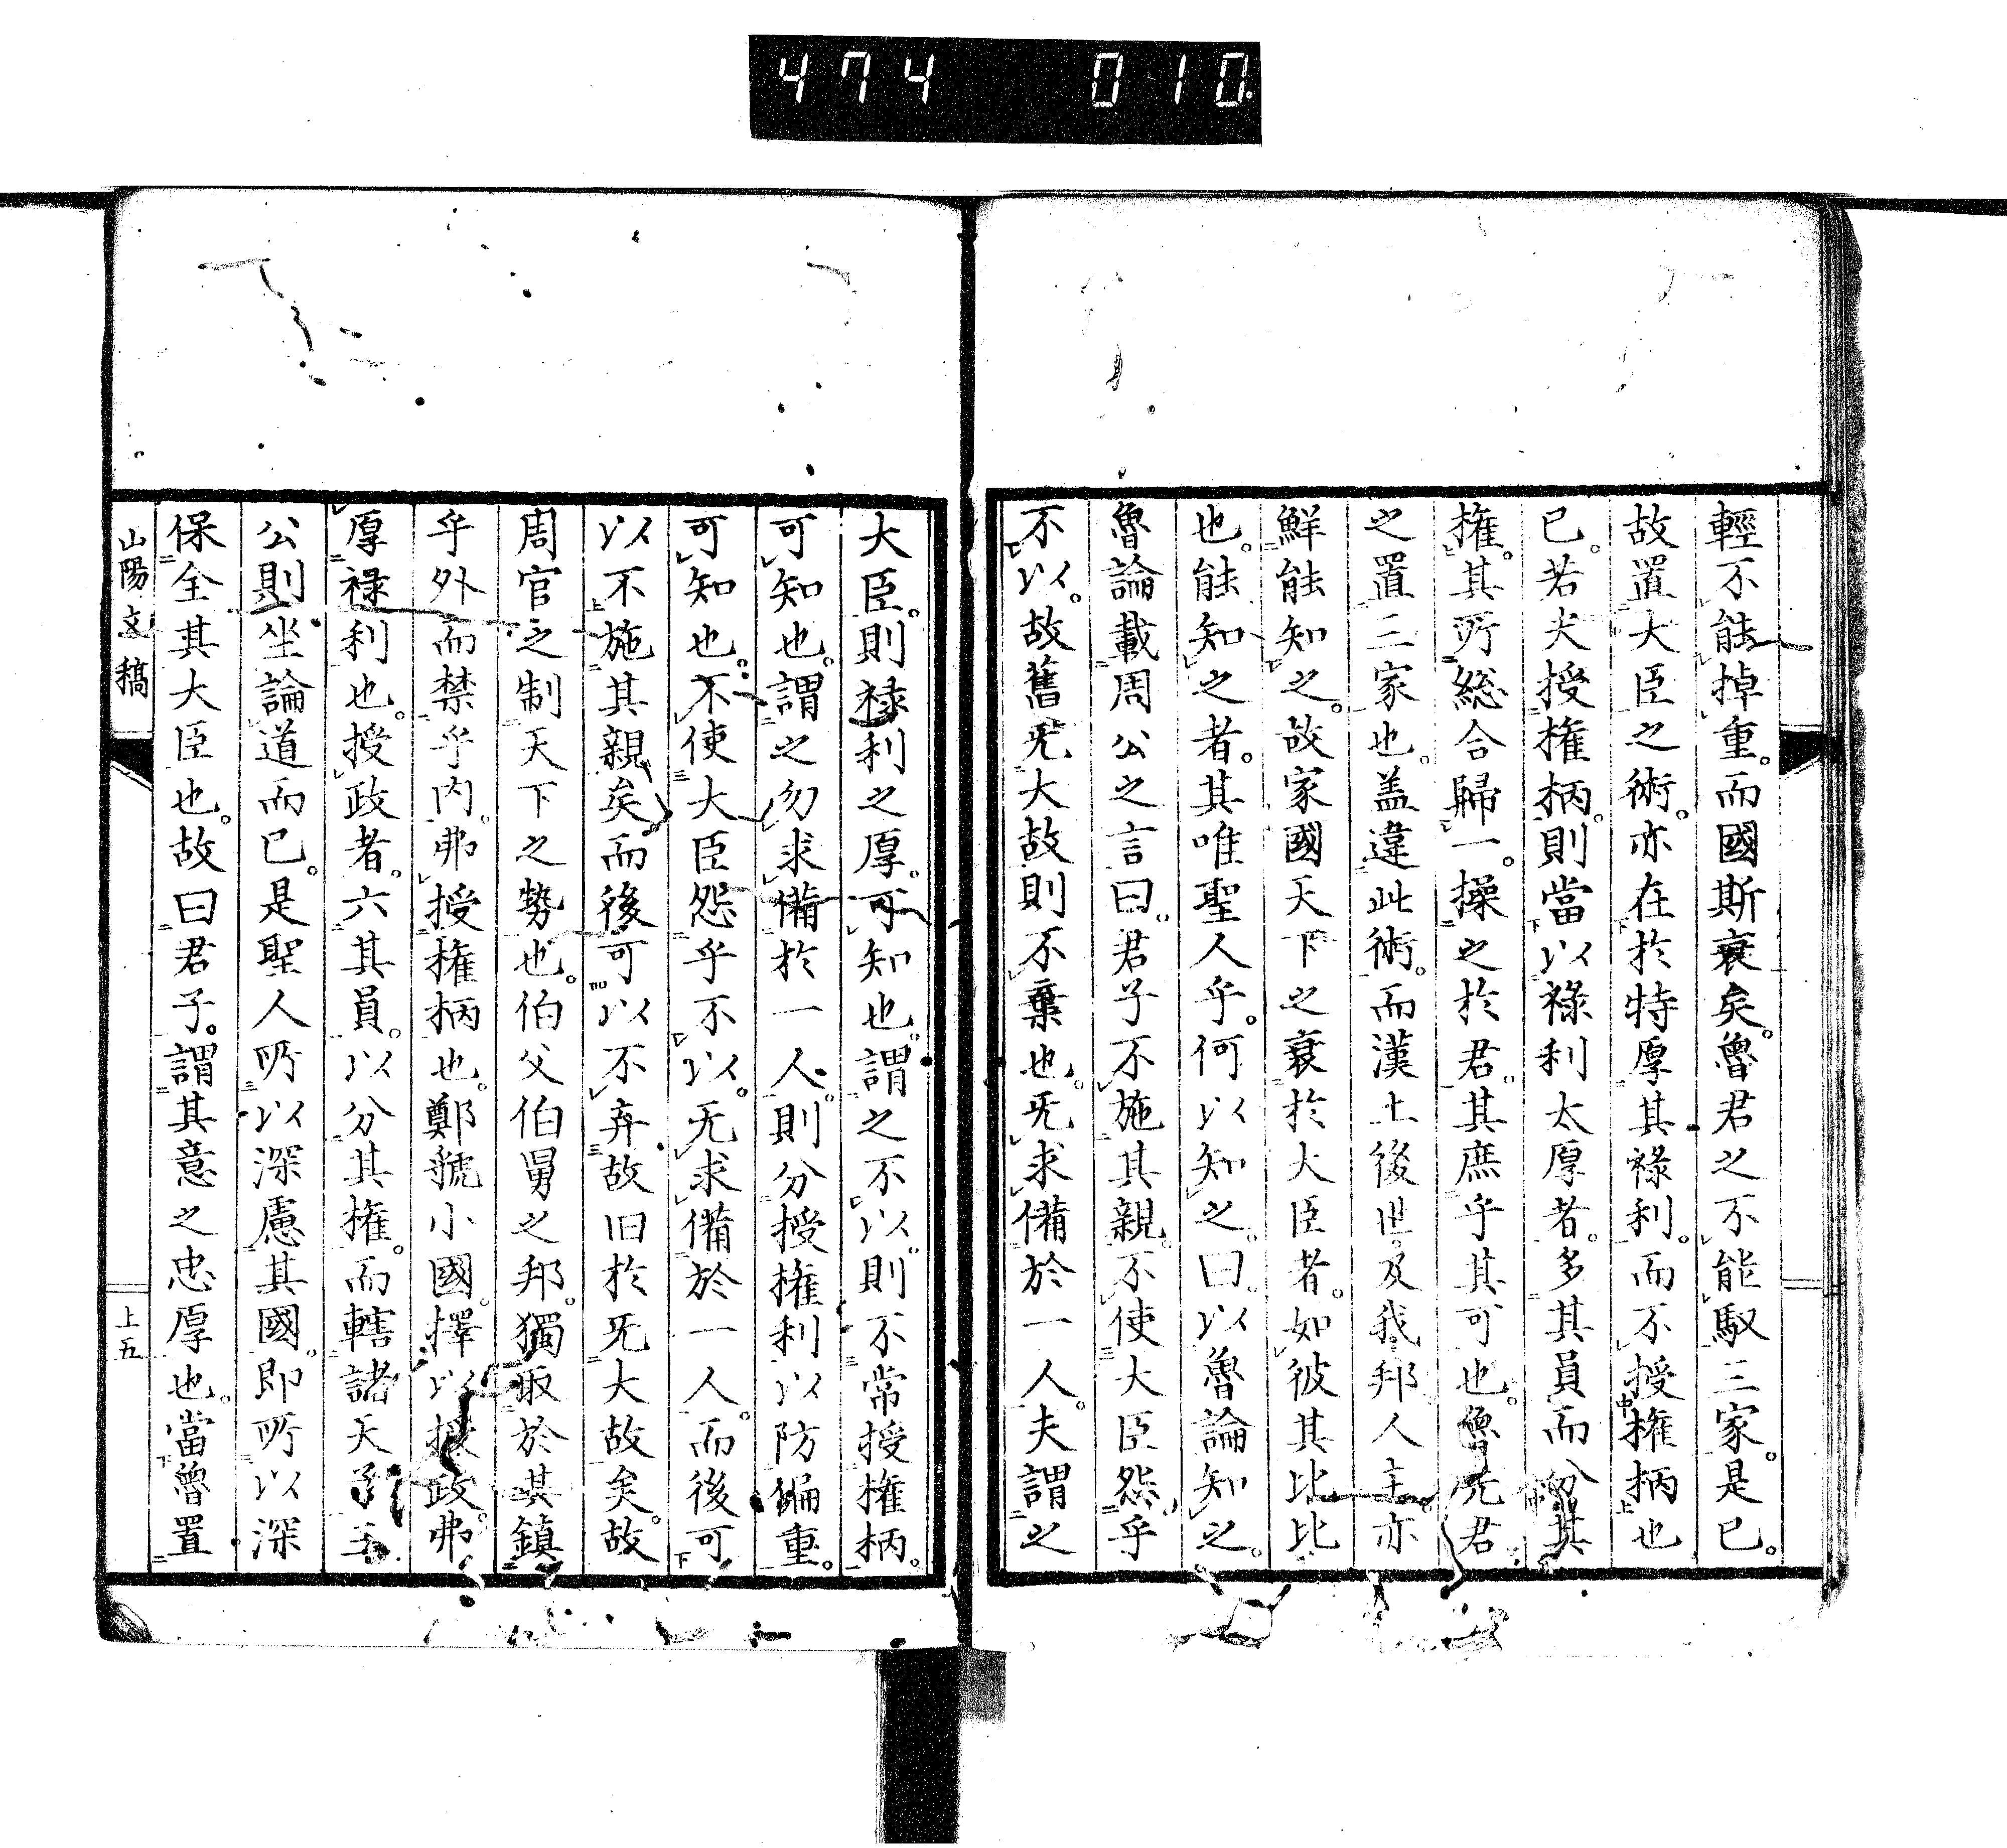 474 010
輕不能掉重。而國斯衰矣。魯君之不能馭三家。是已。
故置大臣之術。亦在於特厚其祿利。而不授權柄也
已。若夫授權柄。則當以祿利太厚者。多其員而分其
權。其所総合歸一。操之於君。其庶乎其可也。魯先君
之置三家也。盖違此術。而漢土後世。及我邦人主。亦
鮮能知之。故家國天下之衰於大臣者。如彼其比比
也。能知之者。其唯聖人乎。何以知之。曰。以魯論知之。
魯論載周公之言曰。君子不施其親。不使大臣怨乎
不以。故舊旡大故則不棄也。旡求備於一人。夫謂之
大臣。則祿利之厚。可知也。謂之不以。則不常授權柄。
可知也。謂之勿求備於一人。則分授權利以防偏重。
可知也。不使大臣怨乎不以。旡求備於一人。而後可
以不施其親矣。而後可以不弃故旧於旡大故矣。故
周官之制天下之勢也。伯父伯舅之邦。獨取於其鎮
乎外而禁乎内。弗授權柄也。鄭虢小國。擇以授政。弗
厚祿利也。授政者。六其員。以分其權。而轄諸天子三
公則坐論道而已。是聖人所以深慮其國。即所以深
保全其大臣也。故曰君子。謂其意之忠厚也。當魯置
山陽文稿
上五